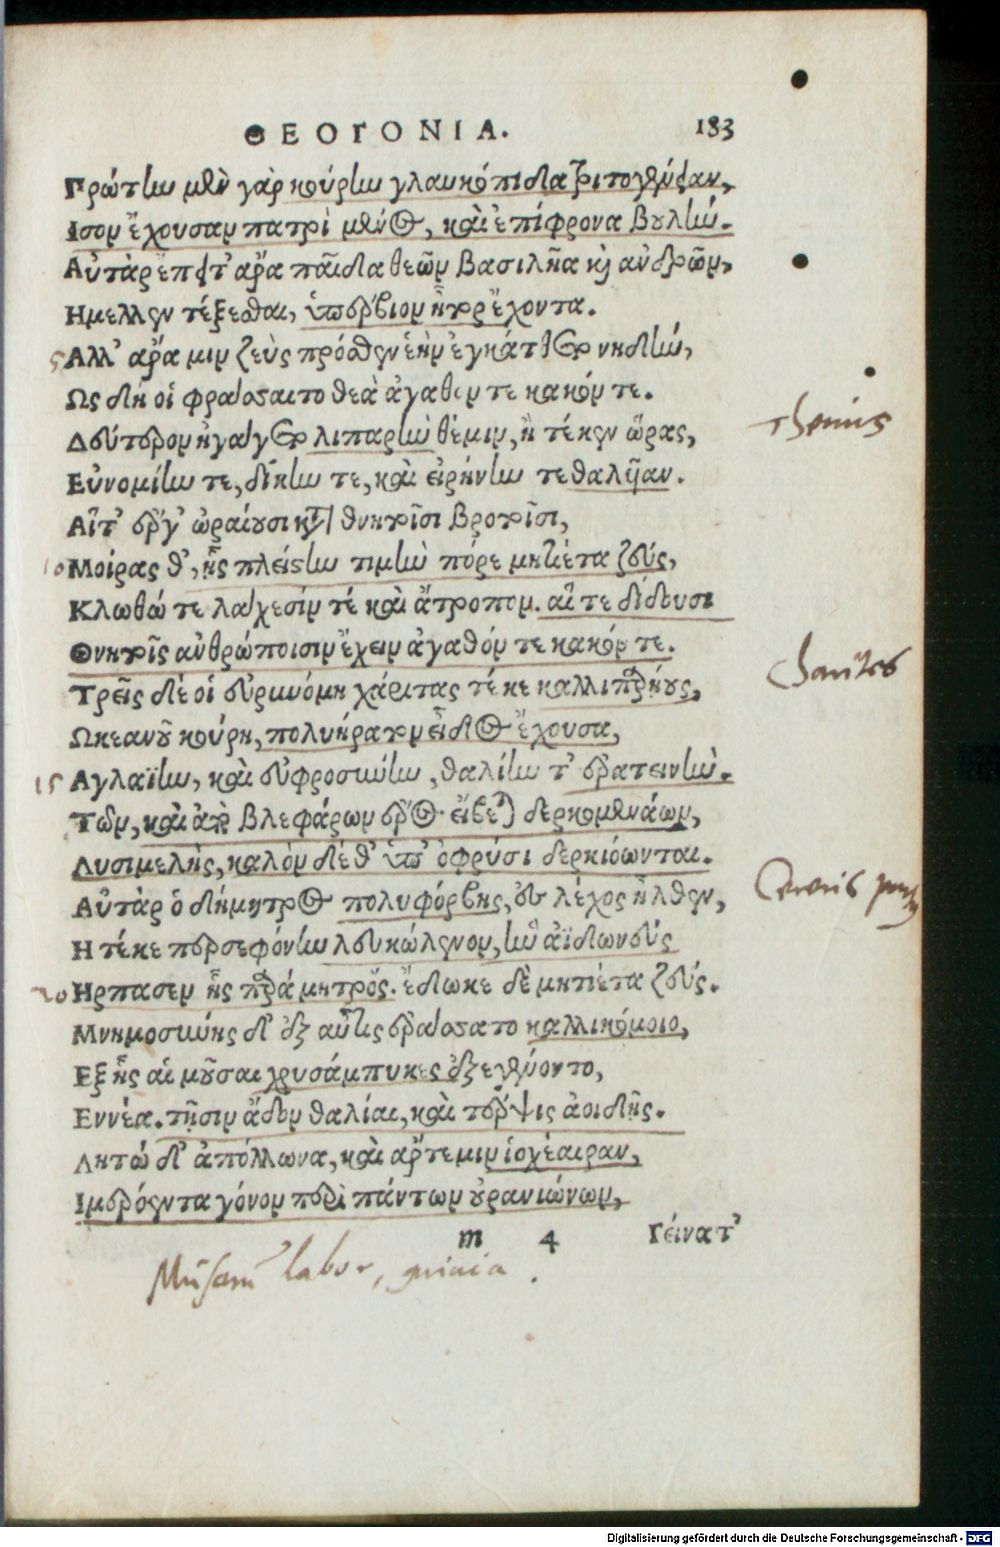 ΘΕΟΓΟΝΙΑ. 183
Πρώτην μὲν γὰρ κούρην γλαυκόπιδα τριτογένειαν,
Ισον ἔχουσαν πατρὶ μένος, καὶ ἐπίφρονα βουλήν.
Αὐτὰρ ἔπειτ' ἄρα παῖδα θεῶν βασιλῆα καὶ ἀνδρῶν,
Ημελλεν τέξεσθαι, ὑπέρβιον ἦτορ ἔχοντα.
5 Αλλ' ἄρα μιν ζεὺς πρόσθεν ἑὴν ἐγκάτθετο νηδύν,
Ως δή οἱ φράσσαιτο θεὰ ἀγαθόν τε κακόν τε.
Δεύτερον ἠγάγετο λιπαρὴν θέμιν, ἣ τέκεν ὥρας,
Εὐνομίην τε, δίκην τε, καὶ εἰρήνην τεθαλυῖαν.
Αἵτ' ἔργ' ὠραίουσι καταθνητοῖσι βροτοῖσι,
10 Μοίρας θ', ᾗς πλείστην τιμὴν πόρε μητίετα ζεύς,
Κλωθώ τε λάχεσίν τέ καὶ ἄτροπον. αἵ τε διδοῦσι
Θνητοῖς ἀνθρώποισιν ἔχειν ἀγαθόν τε κακόν τε.
Τρεῖς δέ οἱ εὐρυνόμη χάριτας τέκε καλλιπαρῄους,
Ωκεανοῦ κούρη, πολυήρατον εἶδος ἔχουσα,
15 Αγλαΐην, καὶ εὐφροσύνην, θαλίην τ' ἐρατεινήν.
Τῶν, καὶ ἀπὸ βλεφάρων ἔρος εἴβετο δερκομενάων,
Λυσιμελής, καλὸν δέ θ' ὑπ' ὀφρύσι δερκιόωνται.
Αὐτὰρ ὁ δήμητρος πολυφόρβης, ἐς λέχος ἦλθεν,
Η τέκε περσεφόνην λευκώλενον, ἣν ἀϊδωνεύς
20 Ηρπασεν ἧς παρὰ μητρός. ἔδωκε δὲ μητίετα ζεύς.
Μνημοσύνης δ' ἐξ αὖτις ἐράσσατο καλλικόμοιο,
Εξ ἧς αἱ μοῦσαι χρυσάμπυκες ἐξεγένοντο,
Εννέα. τῇσιν ἅδον θαλίαι, καὶ τέρψις ἀοιδῆς.
Λητὼ δ' ἀπόλλωνα, καὶ ἄρτεμιν ἰοχέαιραν,
Ιμερόεντα γόνον περὶ πάντων οὐρανιώνων,
m 4 Γείνατ'
Themis
Charites
Cereris
Musarum labor,
Digitalisierung gefördert durch die Deutsche Forschungsgemeinschaft - DFG